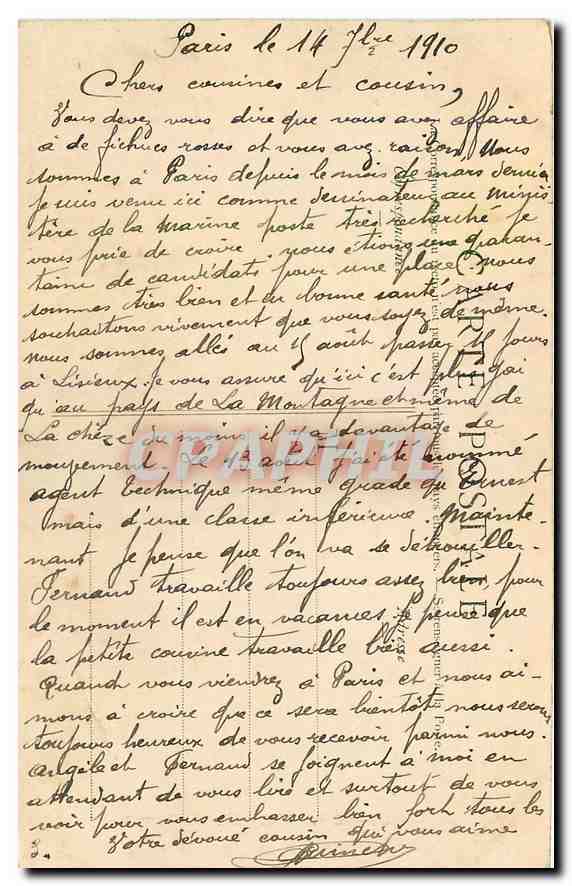 Paris le 14 7bre 1910
Chers cousines et cousin,
Vous devez vous dire que vous avez affaire
à de fichues rosses et vous avez raison. Nous
sommes à Paris depuis le mois de mars dernier
je suis venu ici comme dessinateur au Minis
tère de la Marine poste très recherché je
vous prie de croire. nous étions une quaran-
taine de candidats pour une place. nous
sommes très bien et en bonne santé, nous
souhaitons vivement que vous soyez de même.
nous sommes allés au 15 août passer 15 jours
à Lisieux. je vous assure qu'ici c'est plus gai
qu'au pays de La Montagne et même de
La Chèze du moins il y a davantage de
mouvement. Le 13 août j'ai été nommé
agent technique même grade qu'Ernest
mais d'une classe inférieure. Mainte-
nant je pense que l'on va se débrouiller.
Fernand travaille toujours assez bien, pour
le moment il est en vacances. je pense que
la petite cousine travaille bien aussi.
Quand vous viendrez à Paris et nous ai-
mons à croire que ce sera bientôt nous serons
toujours heureux de vous recevoir parmi nous.
Angèle et Fernand se joignent à moi en
attendant de vous lire et surtout de vous
voir pour vous embrasser bien fort tous les
3. Votre dévoué cousin qui vous aime
CARTE POSTALE
Correspondance
Adresse
CPAPHIL